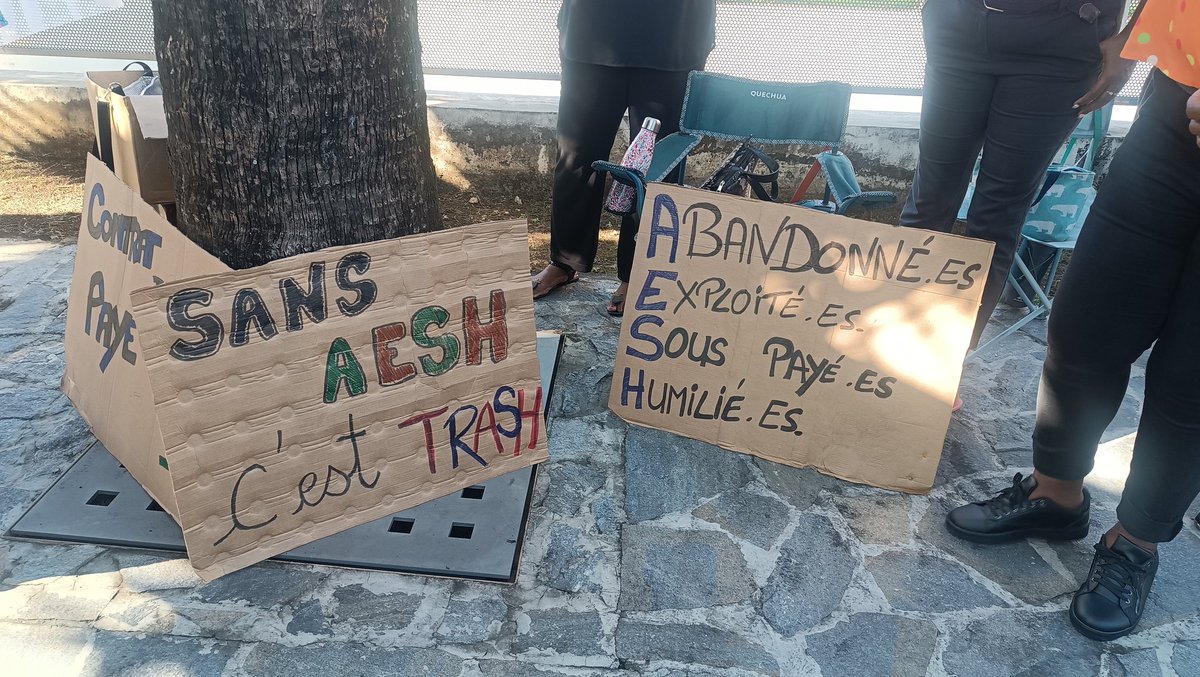 CONTRAT
PAYE
SANS
AESH
C'est TRASH
QUECHUA
ABANDONNÉ.ES
EXPLOITÉ.ES.
SOUS PAYÉ.ES
HUMILIÉ.ES.